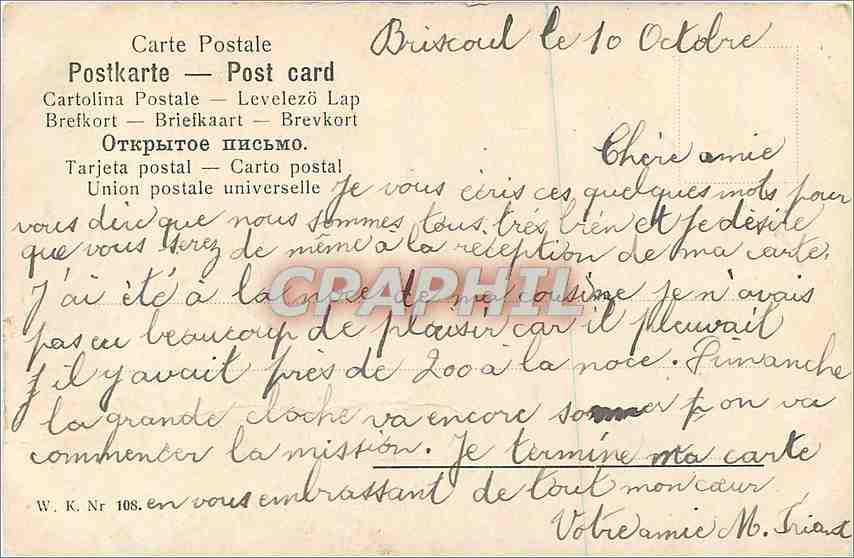 Carte Postale
Postkarte — Post card
Cartolina Postale — Levelező Lap
Brefkort — Briefkaart — Brevkort
Открытое письмо.
Tarjeta postal — Carto postal
Union postale universelle
le 10 Octobre
Chère amie
Je vous écris ces quelques mots pour
vous dire que nous sommes tous très bien et je désire
que vous serez de même a la réception de ma carte.
J'ai été à la noce de ma cousine je n'avais
pas eu beaucoup de plaisir car il pleuvait
il y avait près de 200 à la noce. Dimanche
la grande cloche va encore sonner on va
commencer la mission. Je termine ma carte
W. K. Nr 108. en vous embrassant de tout mon cœur
Votre amie M.
CPAPHIL